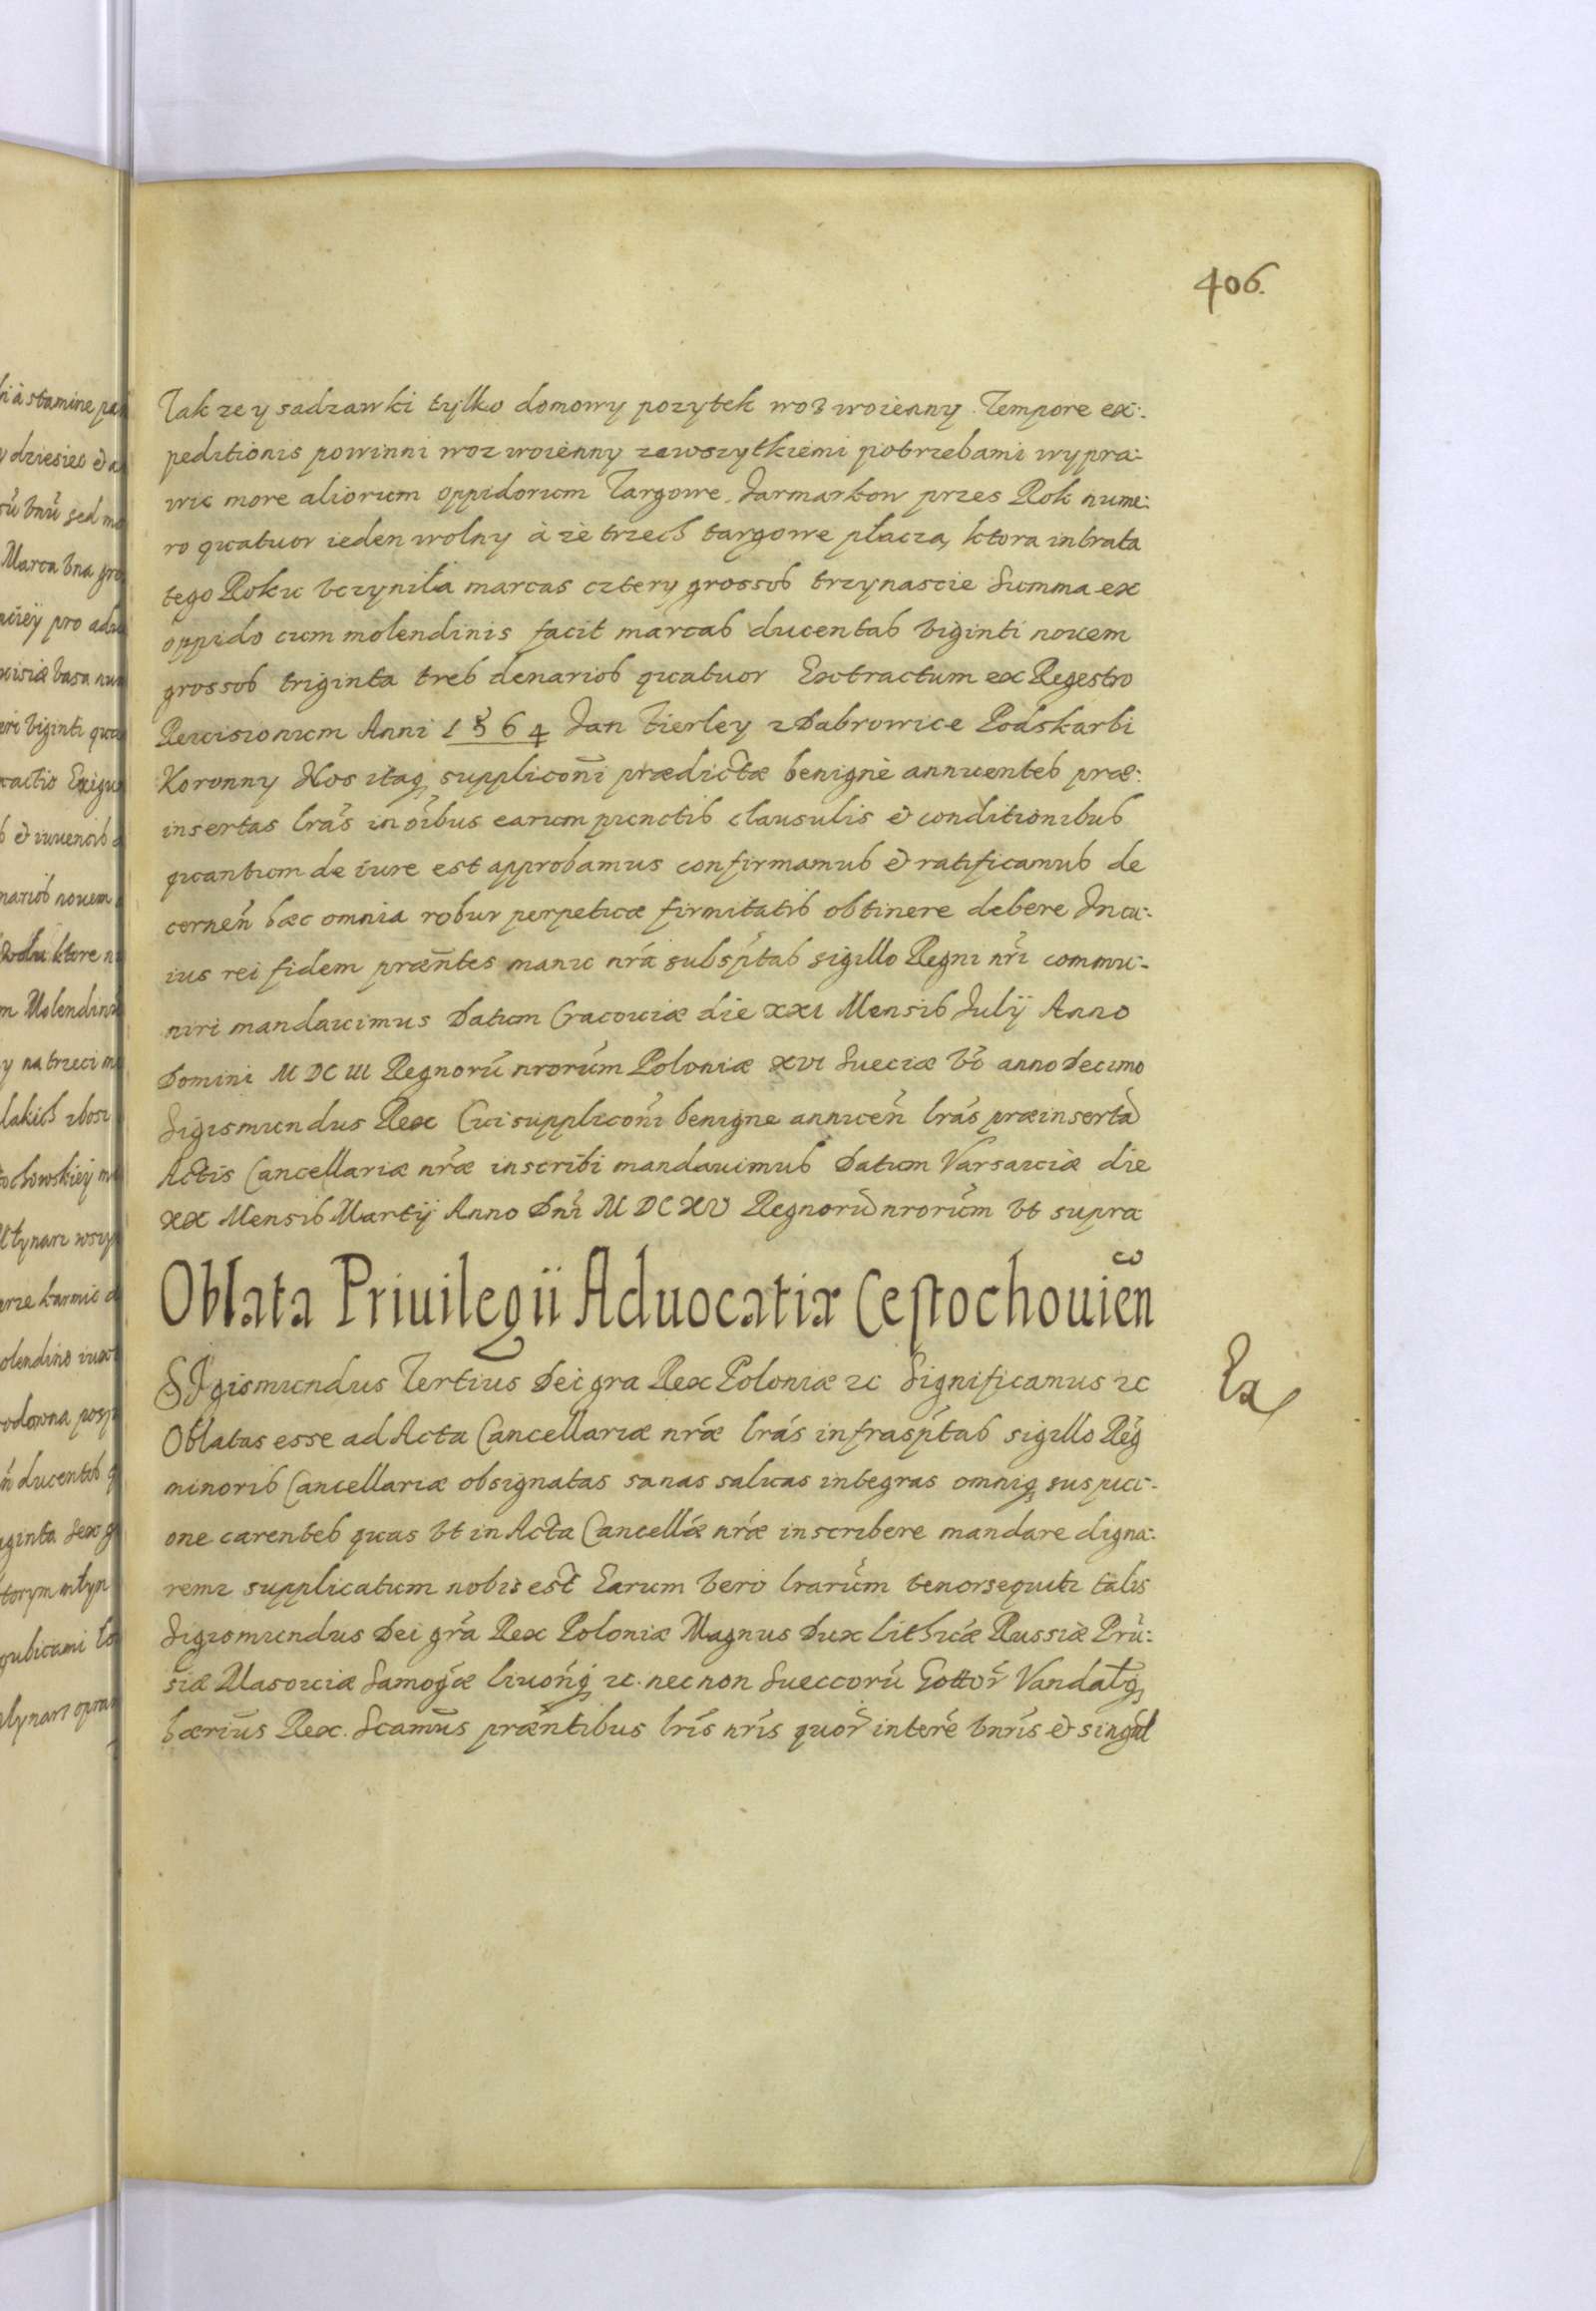 406.
Takze y sadzawki tylko domowy pozytek woz woienny Tempore ex:
peditionis powinni woz woienny zewszytkiemi potrzebami wypra:
wic more aliorum oppidorum Targowe Jarmarkow przes Rok nume:
ro quatuor ieden wolny à ze trzech targowe płacza, ktora intrata
tego Roku vczyniła marcas cztery grossos trzynascie Summa ex
oppido cum molendinis facit marcas ducentas viginti nouem
grossos triginta tres denarios quatuor Extractum ex Regestro
Reuisionum Anni 1564 Jan Fierley z Dabrowice Podskarbi
Koronny Nos itaq supplicoñi prædictæ benignè annuentes præ:
insertas lrãs in oĩbus earum punctis clausulis et conditionibus
quantum de iure est approbamus confirmamus et ratificamus de
cerneñ hæc omnia robur perpetuæ firmitatis obtinere debere Incu:
ius rei fidem præñtes manu nrã subsp̃tas sigillo Regni nrĩ commu:
niri mandauimus Datum Cracouiæ die XXI Mensis Julÿ Anno
Domini M DC III Regnorũ nrorũm Poloniæ XVI Sueciæ võ anno Decimo
Sigismundus Rex Cui supplicoñi benigne annueñ lrãs præinsertas
Actis Cancellariæ nrǽ inscribi mandauimus Datum Varsauiæ die
XX Mensis Martÿ Anno Dnĩ M DC XV Regnorũ nrorũm vt supra
Oblata Priuilegii Aduocatiæ Cestochouieñ
Ex
SIgismundus Tertius Dei gra Rex Poloniæ zc Significamus zc
Oblatas esse ad Acta Cancellariæ nrǽ lrãs infrasp̃tas sigillo Reg̃
minoris Cancellariæ obsignatas sanas saluas integras omniq suspici:
one carentes quas vt in Acta Cancellǽ nrǽ inscribere mandare digna:
remr supplicatum nobis est Earum vero lrarũm tenor sequitr talis
Sigismundus Dei grã Rex Poloniæ Magnus Dux Lithuǽ Russiæ Prũ:
siæ Masouiæ Samogǽ Liuoñq zc. nec non Sueccorũ Gottor̃ Vandalq
hærius Rex. Scamũs præñtibus lrĩs nrĩs quor̃ interẽ vnrĩs et singul